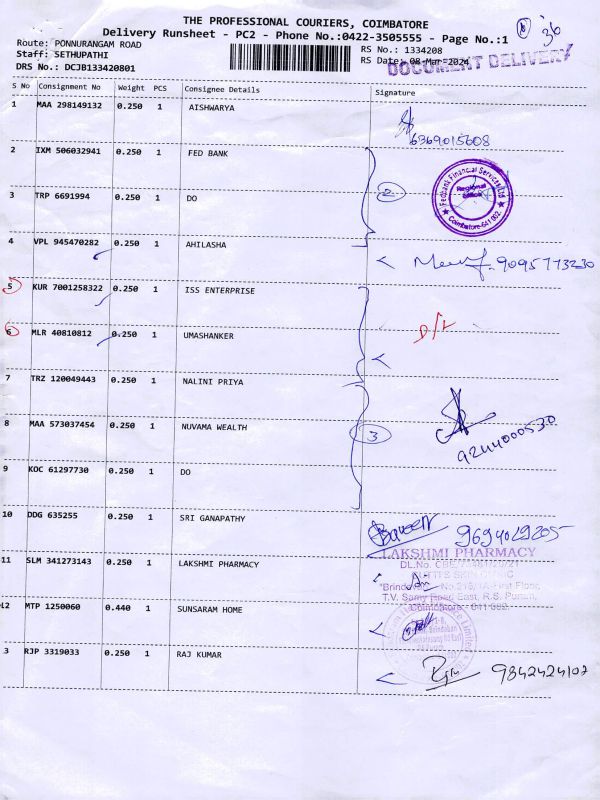 THE PROFESSIONAL COURIERS, COIMBATORE
Delivery Runsheet - PC2 - Phone No.:0422-3505555 - Page No.:1
8
36
Route: PONNURANGAM ROAD
Staff: SETHUPATHI
DRS No.: DCJB133420801
RS No.: 1334208
RS Date: 08-Mar-2024
DOCUMENT DELIVERY
S No Consignment No Weight PCS Consignee Details Signature
1 MAA 298149132 0.250 1 AISHWARYA
6369015608
2 IXM 506032941 0.250 1 FED BANK
Fedbank Financial Services Ltd
Regional Office
Coimbatore-641 002.
3 TRP 6691994 0.250 1 DO
2
4 VPL 945470282 0.250 1 AHILASHA
9095773230
5 KUR 7001258322 0.250 1 ISS ENTERPRISE
D/L
6 MLR 40810812 0.250 1 UMASHANKER
7 TRZ 120049443 0.250 1 NALINI PRIYA
8 MAA 573037454 0.250 1 NUVAMA WEALTH
3
9244000530
9 KOC 61297730 0.250 1 DO
10 DDG 635255 0.250 1 SRI GANAPATHY
9694029205
11 SLM 341273143 0.250 1 LAKSHMI PHARMACY
LAKSHMI PHARMACY
DL.No.
First Floor,
T.V. Samy Road East, R.S. Puram,
Coimbatore - 641 002.
12 MTP 1250060 0.440 1 SUNSARAM HOME
3 RJP 3319033 0.250 1 RAJ KUMAR
9842424107